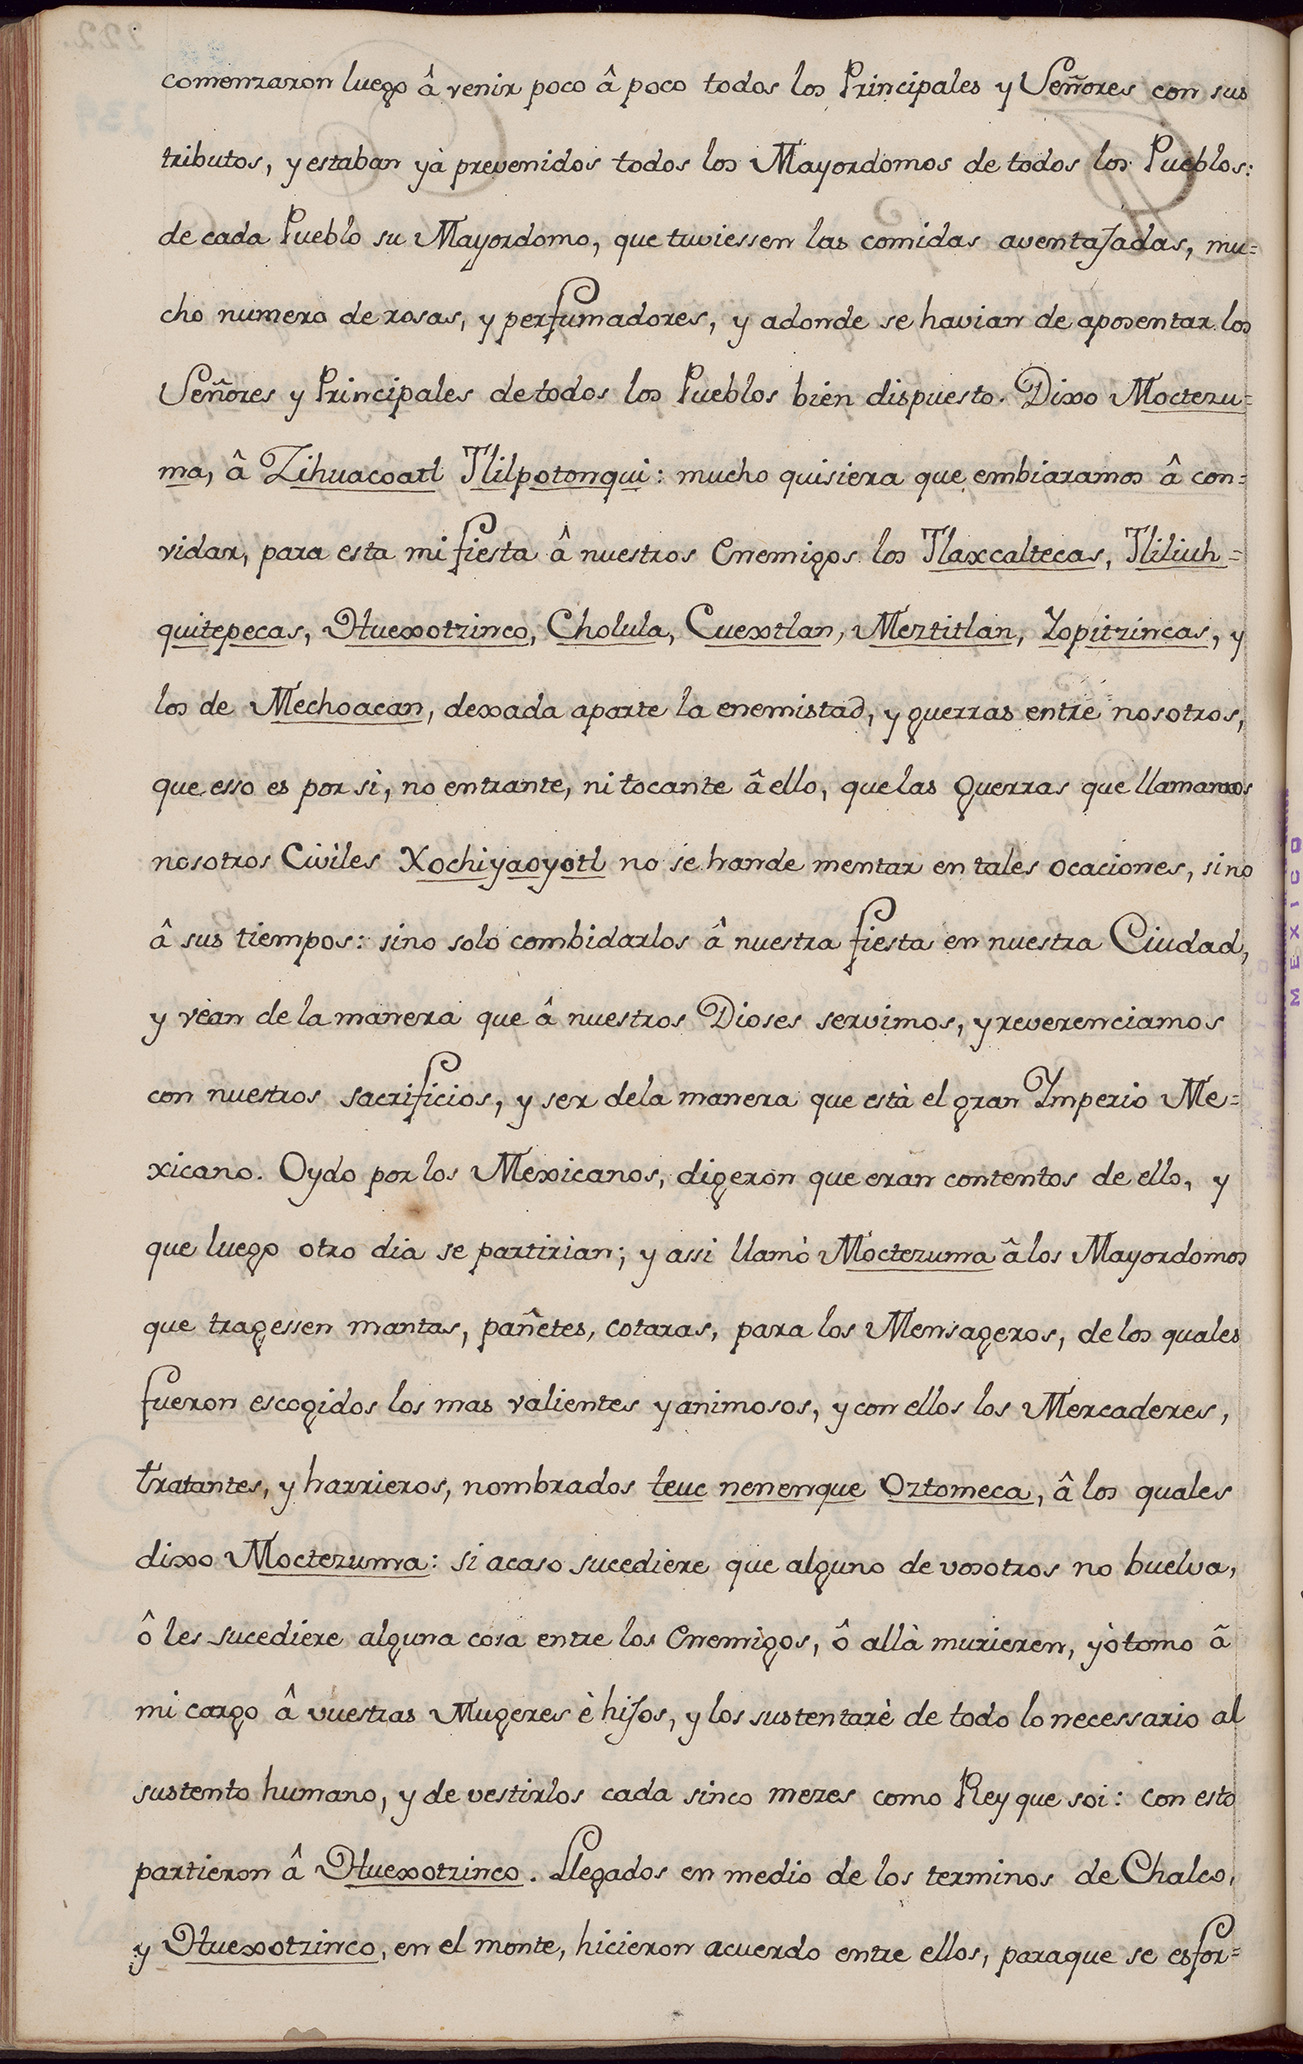 comenzaron luego â venir poco â poco todos los Principales y Señores con sus
tributos, y estaban yà prevenidos todos los Mayordomos de todos los Pueblos:
de cada Pueblo su Mayordomo, que tuviessen las comidas aventajadas, mu=
cho numero de rosas, y perfumadores, y adonde se havian de aposentar los
Señores y Principales de todos los Pueblos bien dispuesto. Dixo Moctezu=
ma, â Zihuacoatl Tlilpotonqui: mucho quisiera que embiaramos â con=
vidar, para esta mi fiesta â nuestros Enemigos los Tlaxcaltecas, Tliliuh=
quitepecas, Huexotzinco, Cholula, Cuextlan, Meztitlan, Yopitzincas, y
los de Mechoacan, dexada aparte la enemistad, y guerras entre nosotros,
que esso es por si, no entrante, ni tocante â ello, que las Guerras que llamamos
nosotros Civiles Xochiyaoyotl no se han de mentar en tales ocaciones, sino
â sus tiempos: sino solo combidarlos â nuestra fiesta en nuestra Ciudad,
y vèan de la manera que â nuestros Dioses servimos, y reverenciamos
con nuestros sacrificios, y ser dela manera que està el gran Ymperio Me=
xicano. Oydo por los Mexicanos, digeron que eran contentos de ello, y
que luego otro dia se partirian; y assi llamò Moctezuma â los Mayordomos
que tragessen mantas, pañetes, cotaras, para los Mensageros, de los quales
fueron escogidos los mas valientes y animosos, y con ellos los Mercaderes,
tratantes, y harrieros, nombrados teuc nenenque Oztomeca, â los quales
dixo Moctezuma: si acaso sucediere que alguno de vosotros no buelva,
ô les sucediere alguna cosa entre los Enemigos, ô allà murieren, yò tomo â
mi cargo â vuestras Mugeres è hijos, y los sustentarè de todo lo necessario al
sustento humano, y de vestirlos cada sinco mezes como Rey que soi: con esto
partieron â Huexotzinco. Llegados en medio de los terminos de Chalco,
y Huexotzinco, en el monte, hicieron acuerdo entre ellos, paraque se esfor=
MEXICO